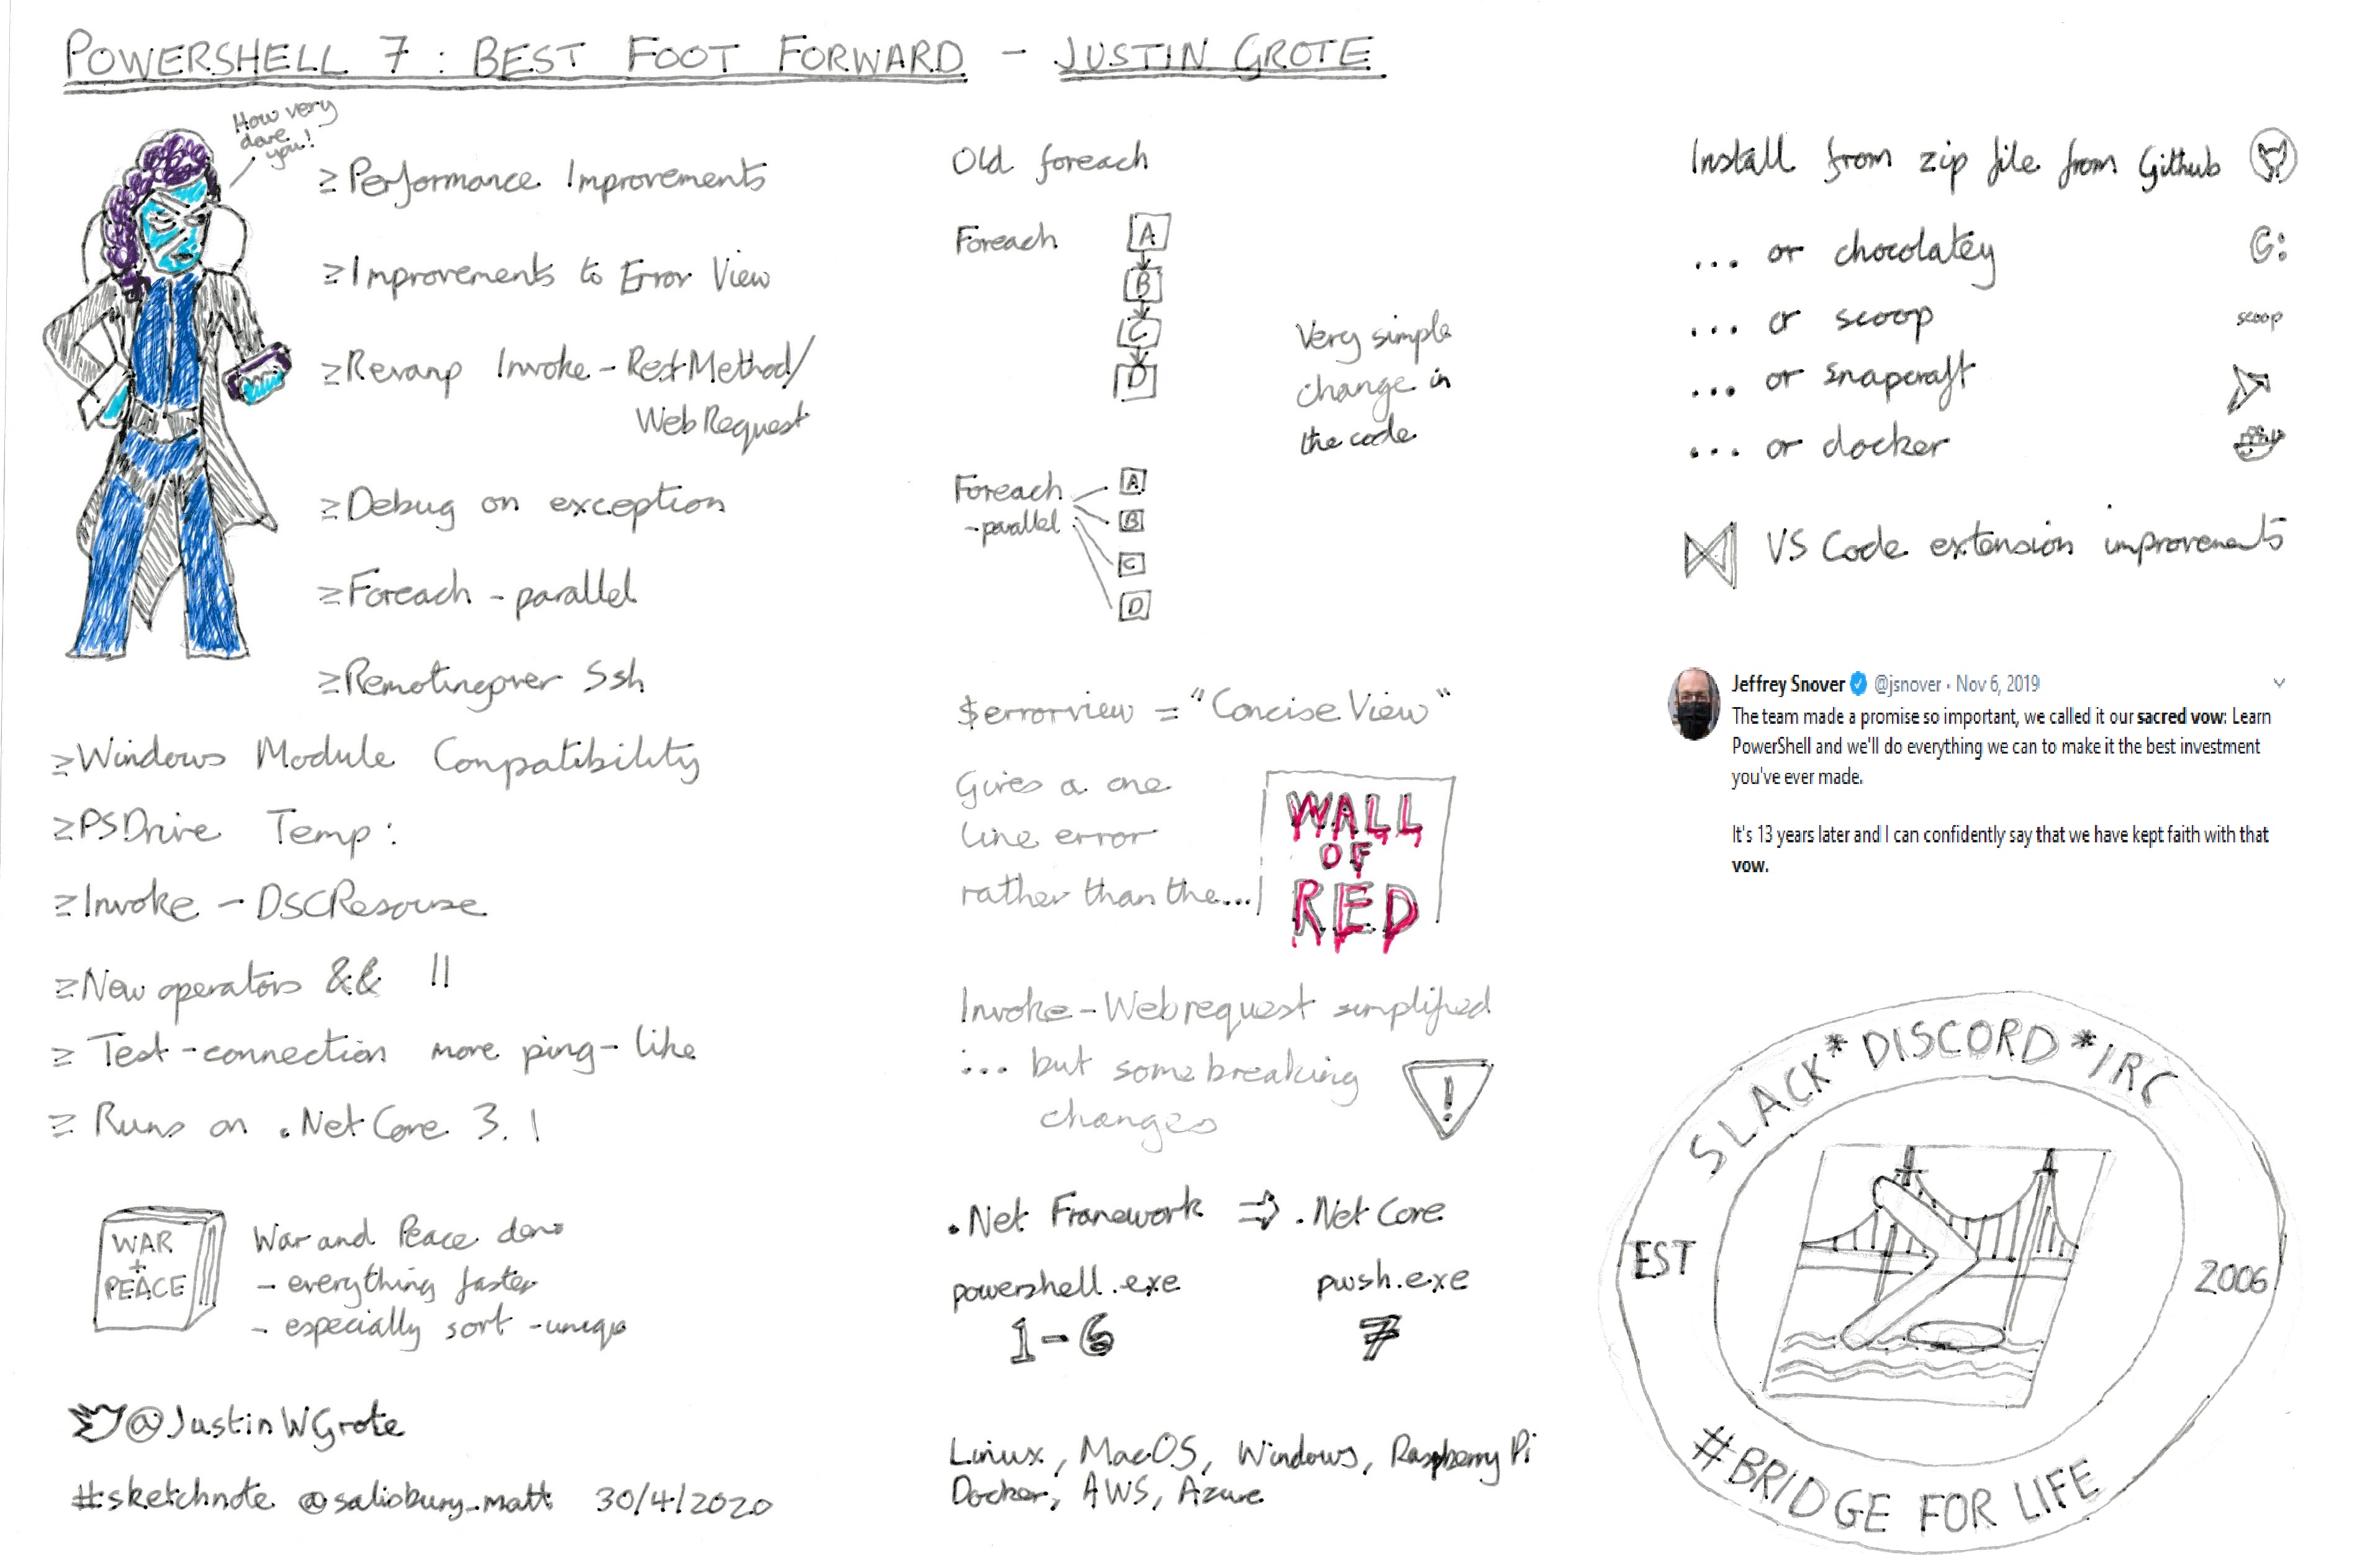 POWERSHELL 7 : BEST FOOT FORWARD - JUSTIN GROTE
How very
dare
you!
≥Performance Improvements
≥Improvements to Error View
≥Revamp Invoke-RestMethod/
WebRequest
≥Debug on exception
≥Foreach -parallel
≥Remoting over Ssh
≥Windows Module Compatibility
≥PSDrive Temp:
≥Invoke-DSCResource
≥New operators && ||
≥Test-connection more ping-like
≥Runs on .Net Core 3.1
WAR
+
PEACE
War and Peace demo
- everything faster
- especially sort -unique
@JustinWGrote
#sketchnote @salisbury_matt 30/4/2020
Old foreach
Foreach
A
B
C
D
Very simple
change in
the code
Foreach
-parallel
A
B
C
D
$errorview = "Concise View"
Gives a one
line error
rather than the...
WALL
OF
RED
Invoke-Webrequest simplified
... but some breaking
changes
!
.Net Framework ⇒ .Net Core
powershell.exe pwsh.exe
1-6 7
Linux, MacOS, Windows, Raspberry Pi
Docker, AWS, Azure
Install from zip file from Github
... or chocolatey C:
... or scoop scoop
... or snapcraft
... or docker
VS Code extension improvements
Jeffrey Snover @jsnover · Nov 6, 2019
The team made a promise so important, we called it our sacred vow: Learn
PowerShell and we'll do everything we can to make it the best investment
you've ever made.
It's 13 years later and I can confidently say that we have kept faith with that
vow.
SLACK*DISCORD*IRC
EST 2006
#BRIDGE FOR LIFE